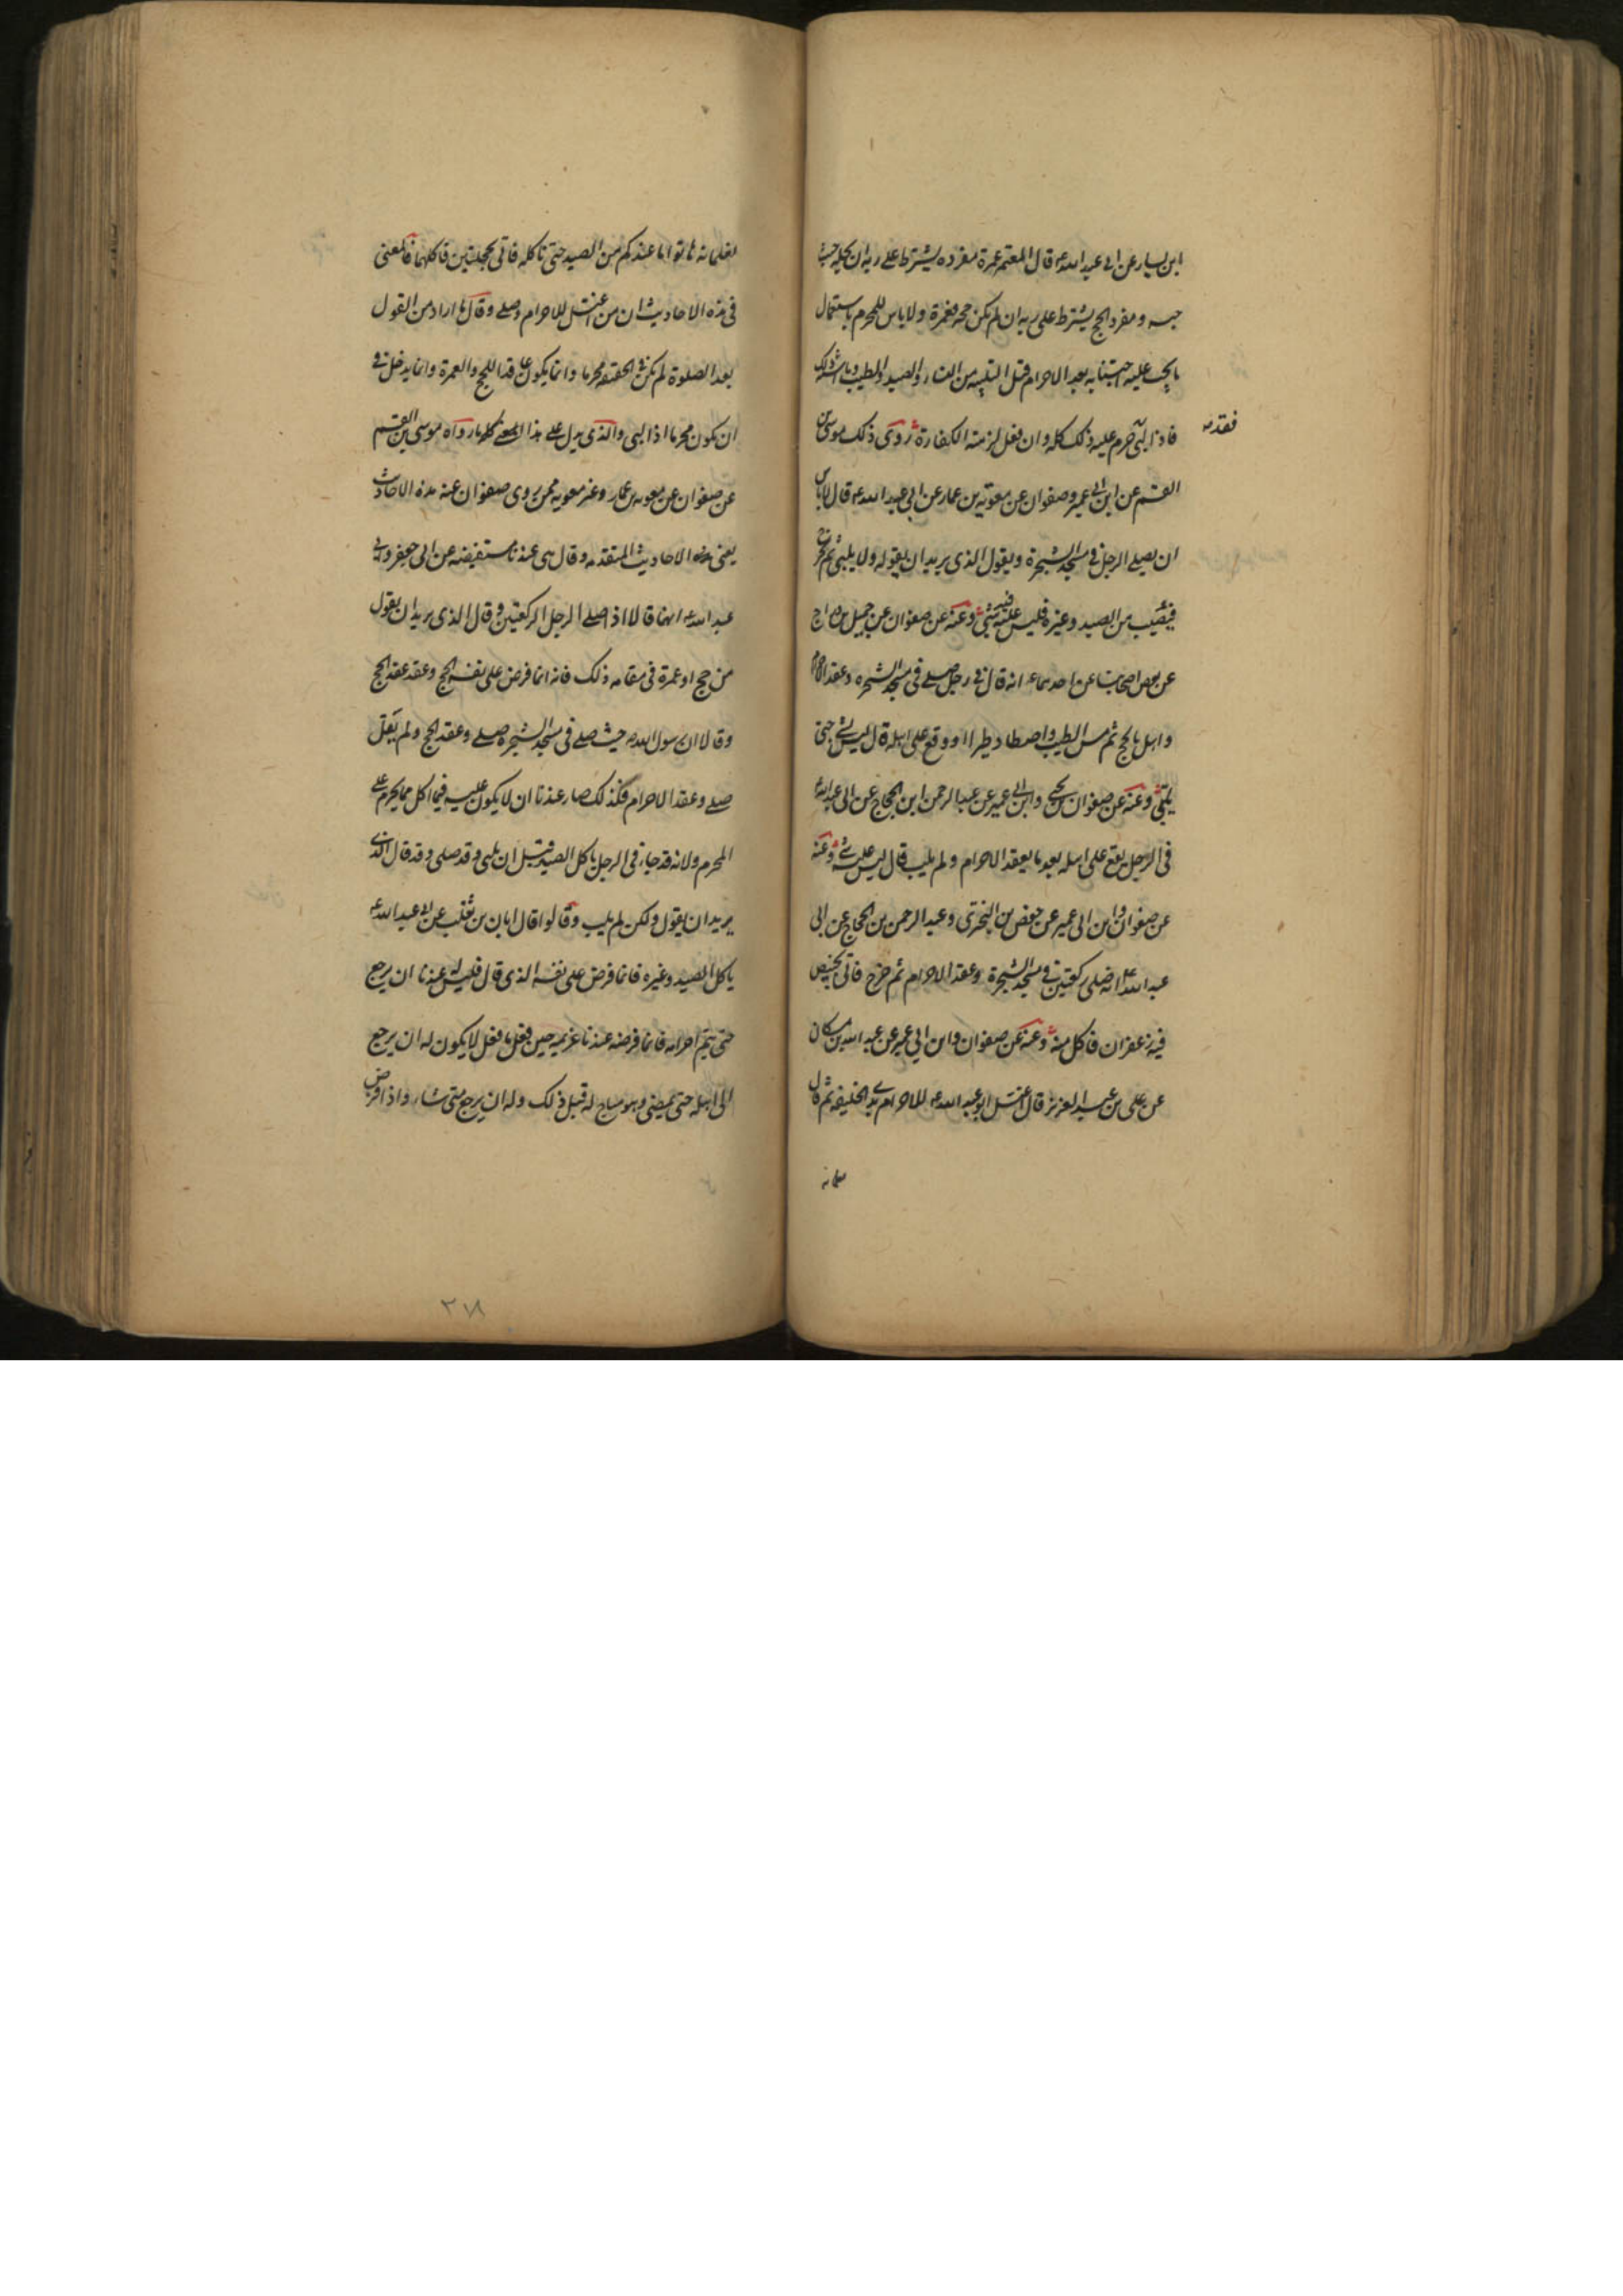 ابن يسار عن ابى عبد الله ع قال المعتمر عمرة مفرده يشترط على ربه ان يحله حيث
حبسه ومفرد الحج يشترط على ربه ان لم يكن حجه فعمرة ولا باس للمحرم باستعمال
ما يجب عليه اجتنابه بعد الاحرام قبل التلبيه من النساء والصيد والطيب وما اشبه ذلك
فاذا لبّى حرم عليه ذلك كله وان فعل لزمته الكفارة روى ذلك موسى بن
فقدمه
القسم عن ابن ابى عمير وصفوان عن معوية بن عمار عن ابى عبد الله ع قال لا باس
ان يصلے الرجل فى مسجد الشجرة ويقول الذى يريد ان يقوله ولا يلبى ثم يخرج
فيصيب من الصيد وغيره فليس عليه فيه شئ وعنه عن صفوان عن جميل بن دراج
عن بعض اصحابنا عن احدهما ع انه قال فى رجل صلے فى مسجد الشجره وعقد الاحرام
واهل بالحج ثم مس الطيب واصطاد طيرا او وقع على اهله قال ليس بشئ حتى
يلبّى وعنه عن صفوان بن يحيى وابن ابى عمير عن عبد الرحمن ابن الحجاج عن ابى عبد الله ع
فى الرجل يقع على اهله بعد ما يعقد الاحرام ولم يلب قال ليس عليه شئ وعنه
عن صفوان وابن ابى عمير عن حفص بن البخترى وعبد الرحمن بن الحجاج عن ابى
عبد الله ع انه صلى ركعتين فى مسجد الشجرة وعقد الاحرام ثم خرج فاتى بخبيص
فيه زعفران فاكل منه وعنه عن صفوان وابن ابى عمير عن عبد الله بن مسكان
عن على بن عبد العزيز قال اغتسل ابو عبد الله ع للاحرام بذى الحليفه ثم قال
لغلمانه هاتوا ما عندكم من الصيد حتى ناكله فاتى بحجلتين فاكلهما فالمعنى
فى هذه الاحاديث ان من اغتسل للاحرام وصلے وقال ما اراد من القول
بعد الصلوة لم يكن فى الحقيقه محرما وانما يكون عاقدا للحج والعمرة وانما يدخل فى
ان يكون محرما اذا لبى والذى يدل على هذا المعنى كله ما رواه موسى بن القسم
عن صفوان عن معويه بن عمار وغير معويه ممن روى صفوان عنه هذه الاحاديث
يعنى هذه الاحاديث المتقدمه وقال هى عندنا مستفيضه عن ابى جعفر وابى
عبد الله ع انهما قالا اذا صلے الرجل الركعتين وقال الذى يريد ان يقول
من حج او عمرة فى مقامه ذلك فانه انما فرض على نفسه الحج وعقد عقد الحج
وقالا ان رسول الله ص حيث صلے فى مسجد الشجره صلے وعقد الحج ولم يقل
صلے وعقد الاحرام فكذلك صار عندنا ان لا يكون عليه فيما اكل مما يحرم على
المحرم ولانه قد جاء فى الرجل ياكل الصيد قبل ان يلبى وقد صلى وقد قال الذى
يريد ان يقول ولكن لم يلب وقالوا قال ابان بن تغلب عن ابى عبد الله ع
ياكل الصيد وغيره فانما فرض على نفسه الذى قال فليس له عندنا ان يرجع
حتى يتم احرامه فانما فرضه عندنا عزيمه حين فعل ما فعل لا يكون له ان يرجع
الى اهله حتى يمضى وهو مباح له قبل ذلك وله ان يرجع متى شاء واذا فرض
٢١٨